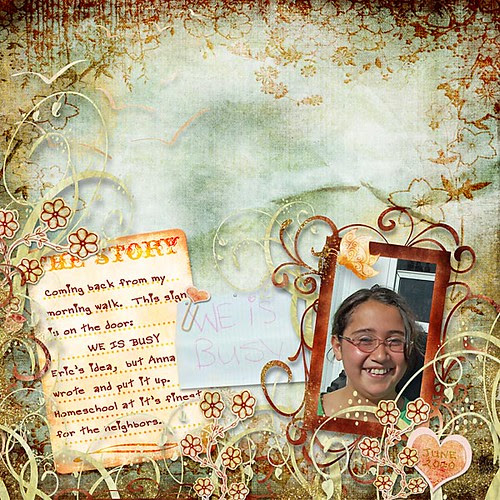 THE STORY
Coming back from my
morning walk. This sign
is on the door:
WE IS BUSY
Eric's idea, but Anna
wrote and put it up.
Homeschool at it's finest
for the neighbors.
WE IS
BUSY
JUNE
2010